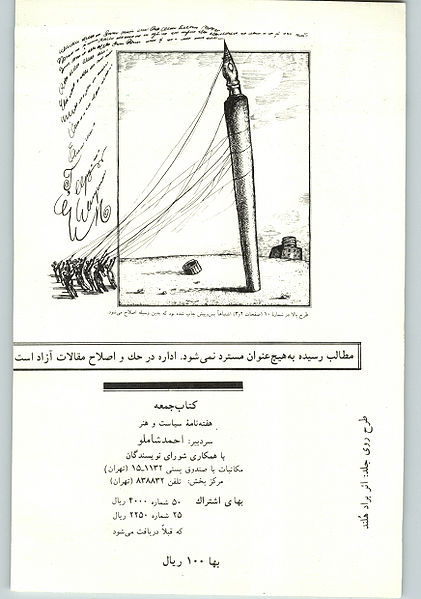 طرح بالا در شمارهٔ ۱۰ (صفحات ۲و۳) اشتباهاً پس‌وپیش چاپ شده بود که بدین وسیله اصلاح می‌شود
مطالب رسیده به‌هیچ‌عنوان مسترد نمی‌شود. اداره در حك و اصلاح مقالات آزاد است
کتاب‌جمعه
هفته‌نامهٔ سیاست و هنر
سردبیر: احمدشاملو
با همکاری شورای نویسندگان
مکاتبات با صندوق پستی ۱۱۳۲-۱۵ (تهران)
مرکز پخش: تلفن ۸۳۸۸۳۲ (تهران)
بهای اشتراك ۵۰ شماره ۴۰۰۰ ریال
۲۵ شماره ۲۲۵۰ ریال
که قبلاً دریافت می‌شود
بها ۱۰۰ ریال
طرح روی جلد: اثر براد هلند